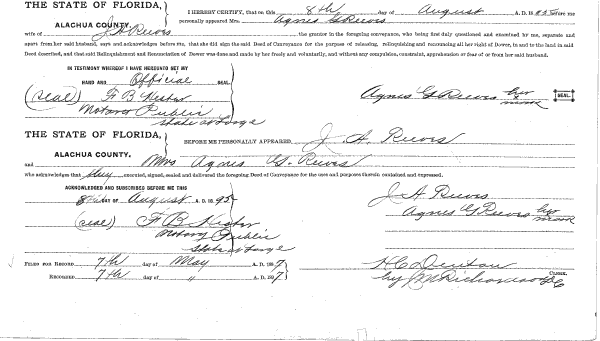 THE STATE OF FLORIDA,
I HEREBY CERTIFY, that on this 8th day of August A. D. 1895 before me
ALACHUA COUNTY. personally appeared Mrs. Agnes G Reeves
wife of J A Reeves the grantor in the foregoing conveyance, who being first duly questioned and examined by me, separate and
apart from her said husband, says and acknowledges before me, that she did sign the said Deed of Conveyance for the purpose of releasing, relinquishing and renouncing all her right of Dower, in and to the land in said
Deed described, and that said Relinquishment and Renunciation of Dower was done and made by her freely and voluntarily, and without any compulsion, constraint, apprehension or fear of or from her said husband.
IN TESTIMONY WHEREOF I HAVE HEREUNTO SET MY
HAND AND Official SEAL
(seal) F B Hester
Notary Public
State at Large
Agnes G Reeves her mark SEAL.
THE STATE OF FLORIDA,
BEFORE ME PERSONALLY APPEARED J. A. Reeves
ALACHUA COUNTY,
and Mrs Agnes G. Reeves
who acknowledges that they executed, signed, sealed and delivered the foregoing Deed of Conveyance for the uses and purposes therein contained and expressed.
ACKNOWLEDGED AND SUBSCRIBED BEFORE ME THIS
8th DAY OF August A. D. 1895
J A Reeves
Agnes G Reeves her mark
(seal) F B Hester
Notary Public
State at Large
FILED FOR RECORD 7th day of May A. D. 1897
RECORDED 7th day of " A. D. 1897
H C Denton CLERK.
by J M Richardson DC